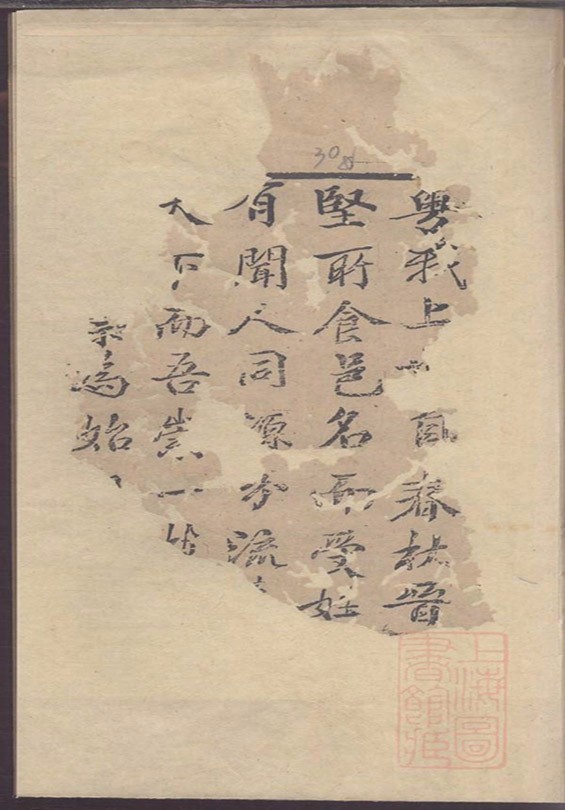 粤我上世自春秋晉
堅所食邑名而受姓
有聞人同源分流
天下而吾崇一
為始
上海圖書館藏
30